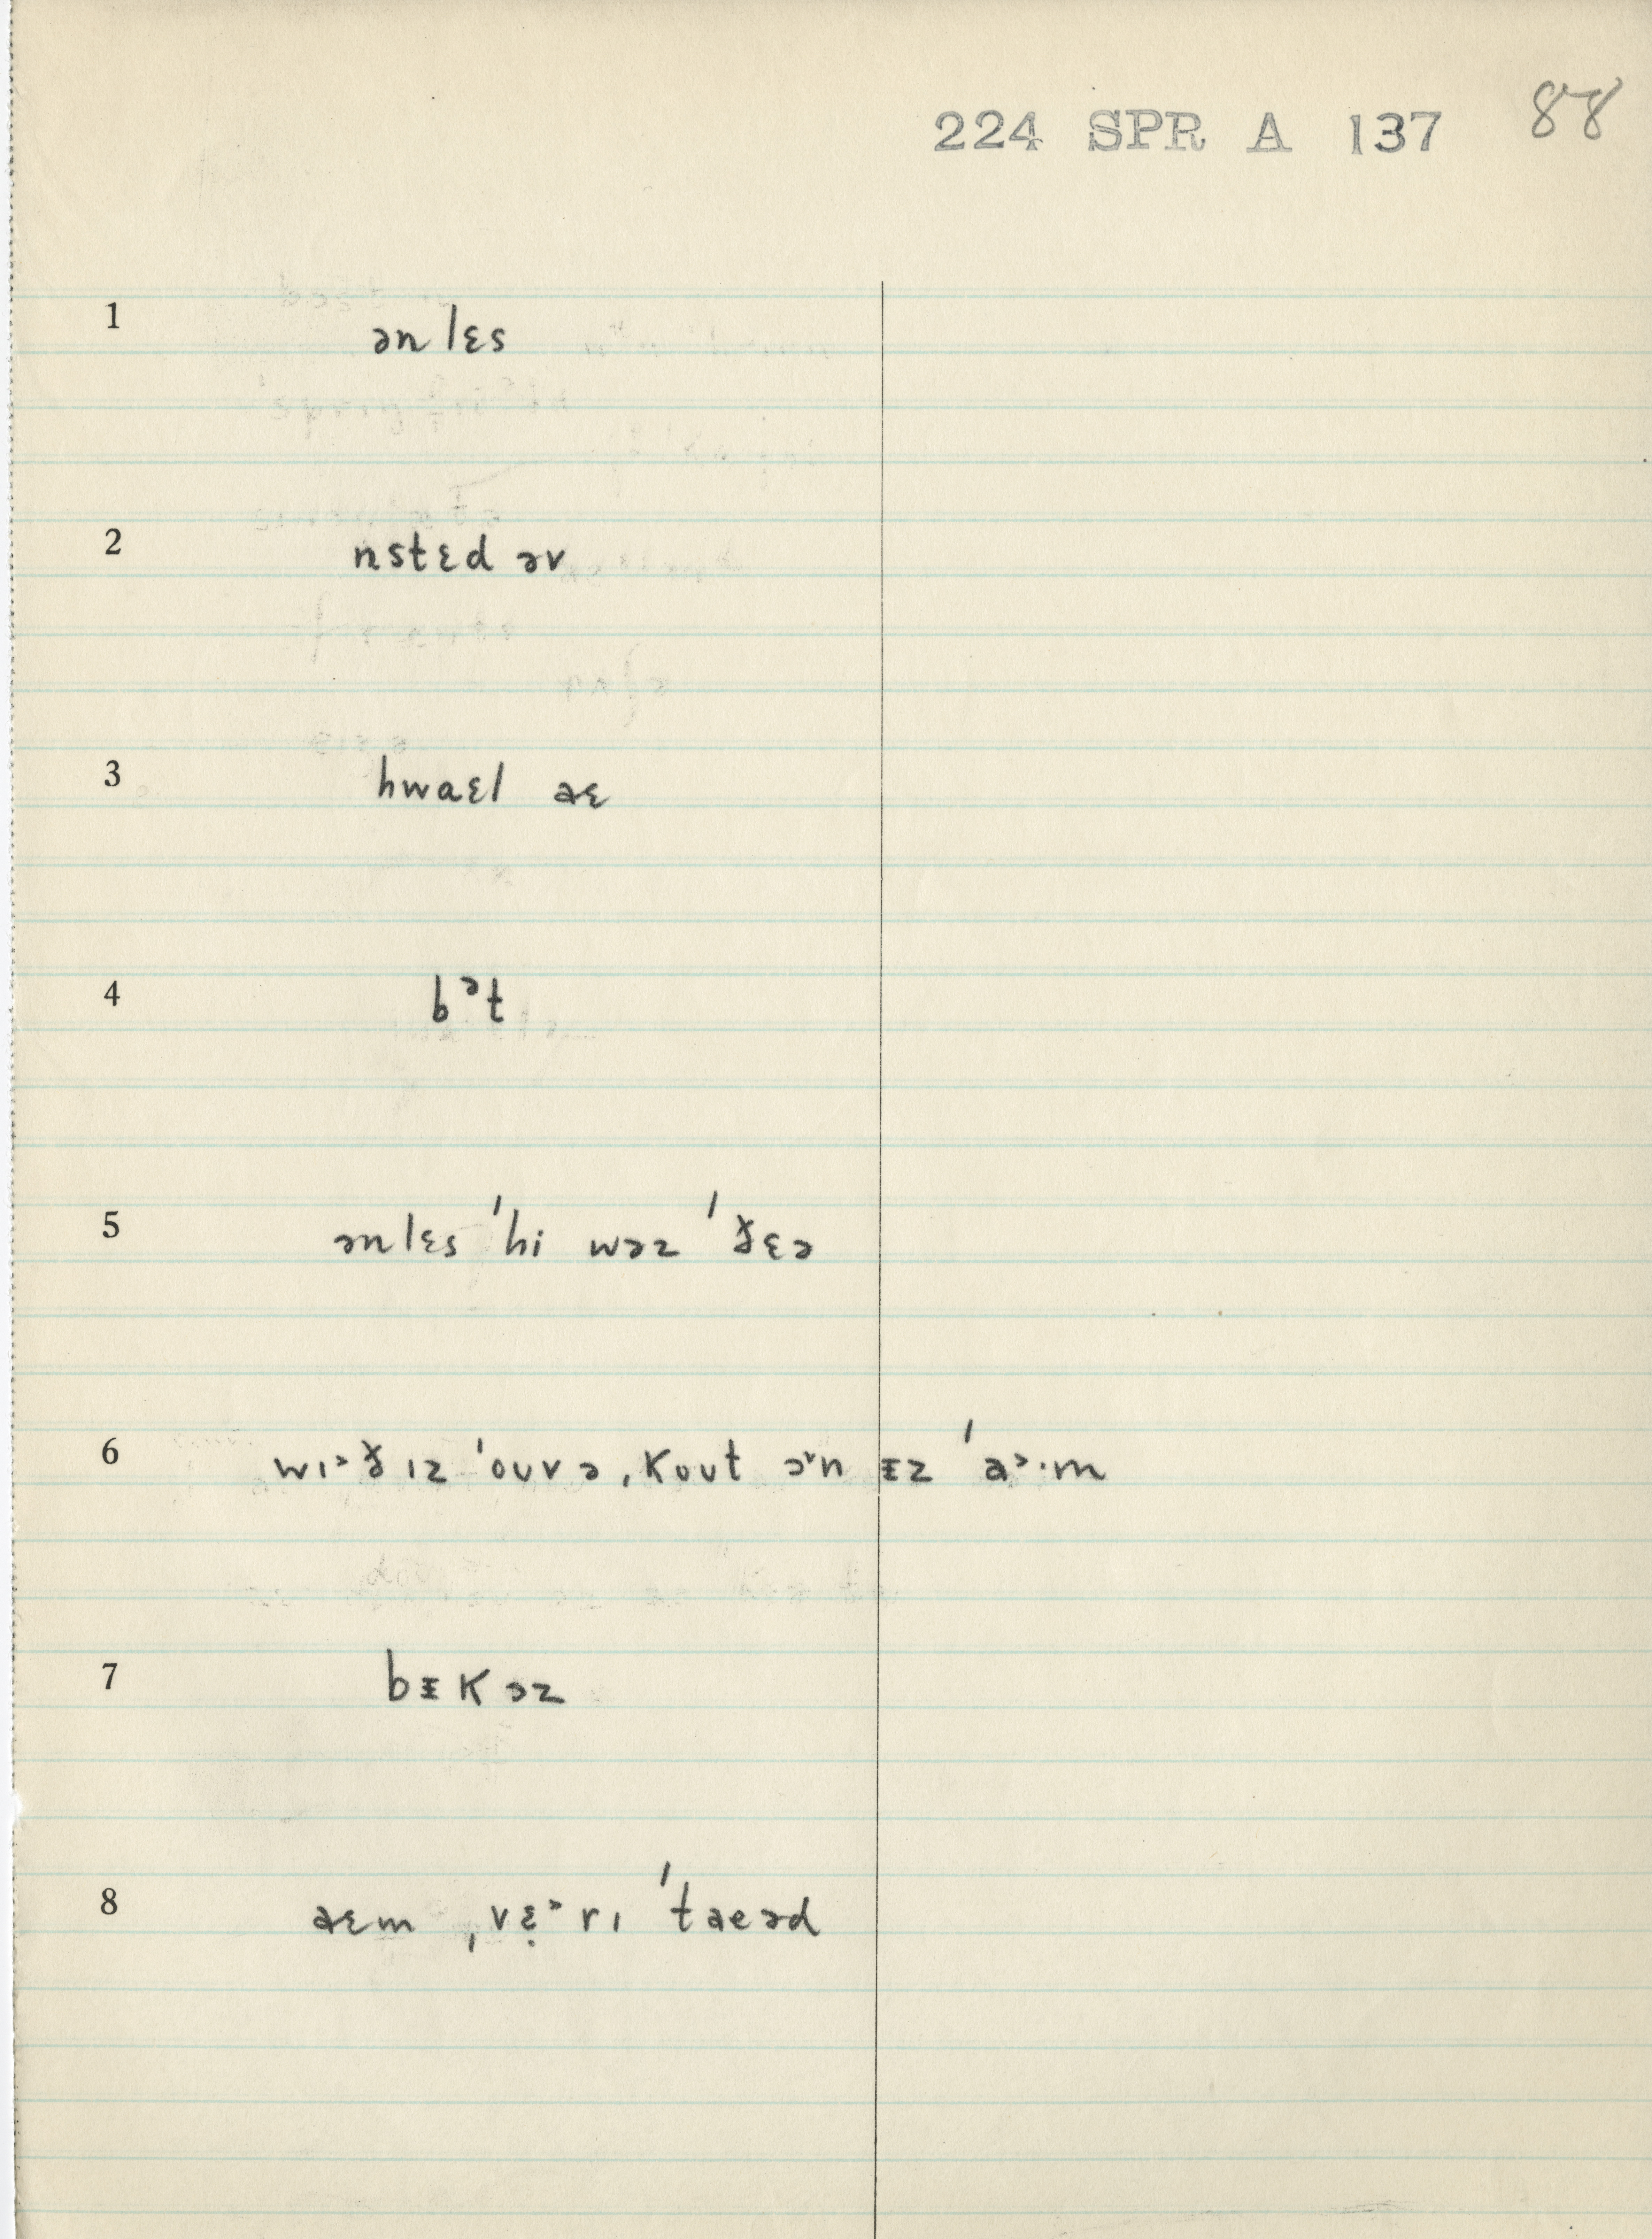 224 SPR A 137 88
1 ənlɛs
2 nstɛd əv
3 hwaɛl aɛ
4 bᵊt
5 ənlɛs ˈhi wəz ˈðɛə
6 wɪᵊð ɪz ˈouvə ˌkout əˠn ᵻz ˈaᵊ·m
7 bᵻkəz
8 aɛm ˌvɛ̣ᵊrɪ ˈtaeəd